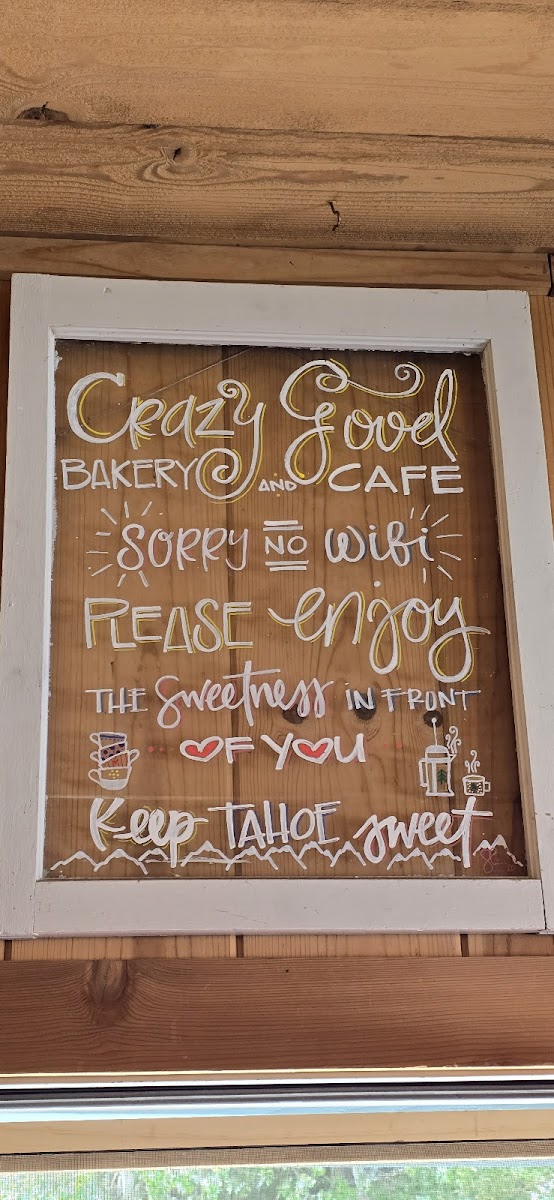 Crazy Good
BAKERY AND CAFE
SORRY NO wifi
PLEASE enjoy
THE Sweetness IN FRONT
OF YOU
Keep TAHOE sweet